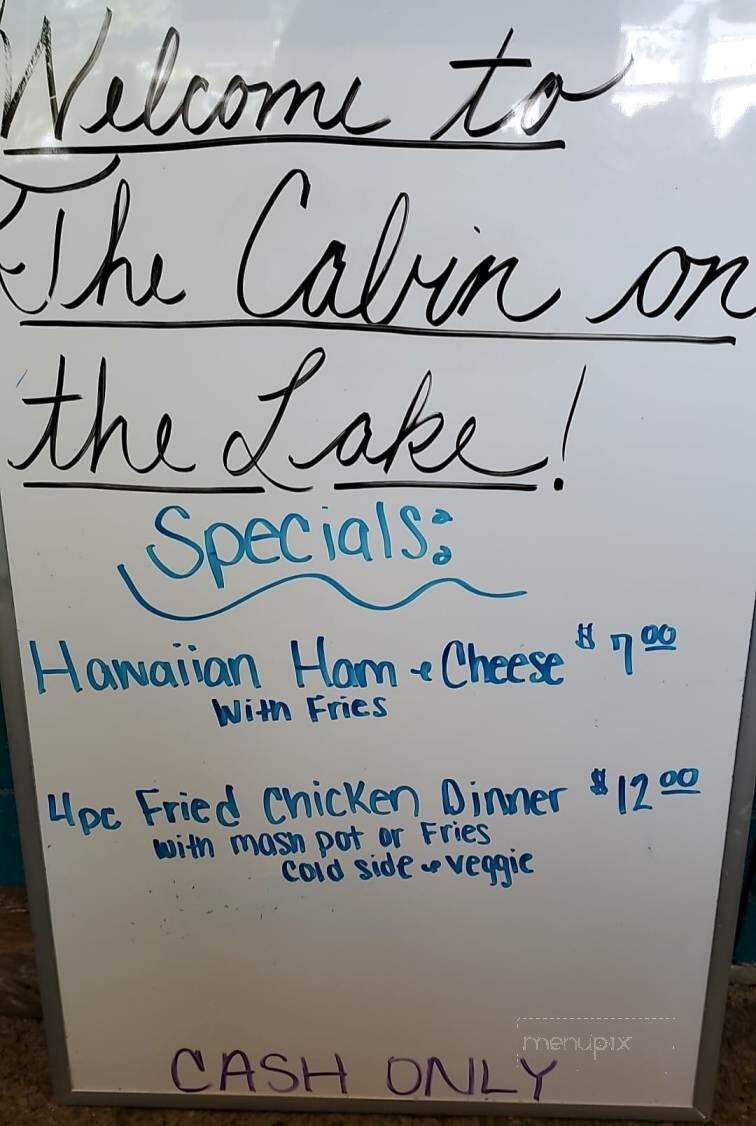 Welcome to
The Cabin on
the Lake!
Specials:
Hawaiian Ham & Cheese $7.00
With Fries
4pc Fried Chicken Dinner $12.00
with mash pot or Fries
cold side & veggie
menupix
CASH ONLY